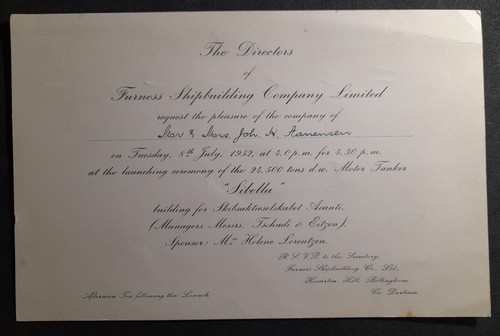 The Directors
of
Furness Shipbuilding Company Limited
request the pleasure of the company of
Mr & Mrs. Joh. H. Aanensen
on Tuesday, 8th July, 1952, at 4.0 p.m. for 4.30 p.m.
at the launching ceremony of the 24,500 tons d.w. Motor Tanker
"Sibella"
building for Skibsaktieselskabet Avanti.
(Managers Messrs. Tschudi & Eitzen).
Sponsor: Mrs Helene Lorentzen.
R.S.V.P. to the Secretary,
Furness Shipbuilding Co. Ltd.,
Haverton Hill, Billingham,
Co. Durham.
Afternoon Tea following the Launch.